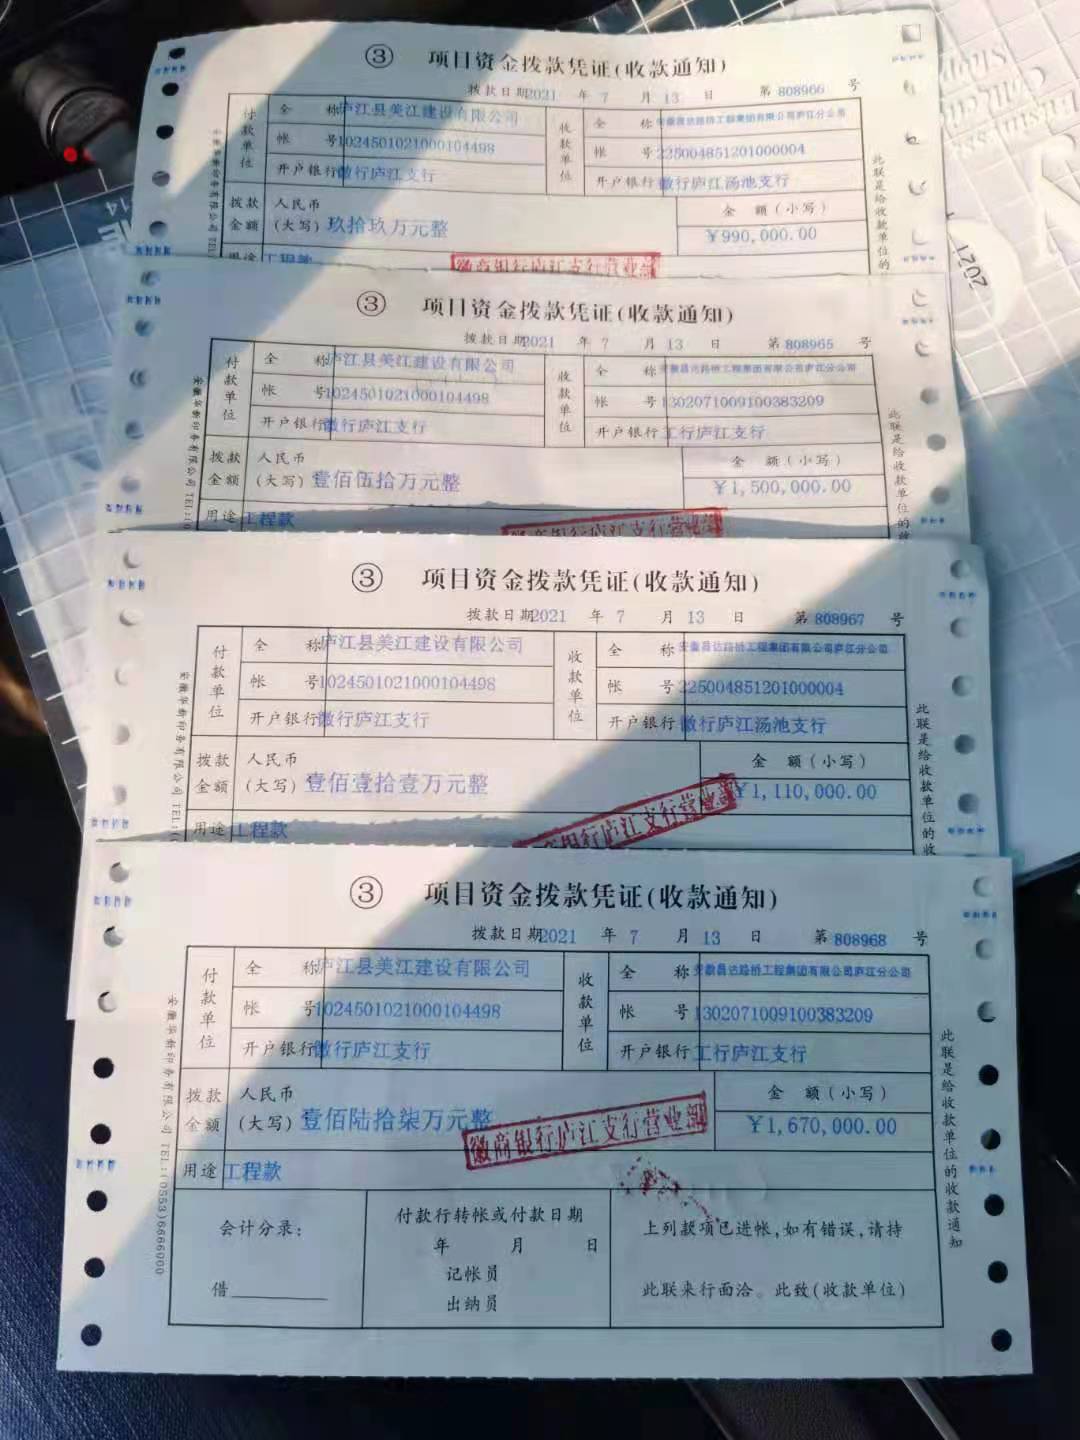 ③ 项目资金拨款凭证(收款通知)
拨款日期2021 年 7 月 13 日 第 808966 号
付款单位 全称 庐江县美江建设有限公司 收款单位 全称 安徽昌达路桥工程集团有限公司庐江分公司
帐号 1024501021000104498 帐号 225004851201000004
开户银行 徽行庐江支行 开户银行 徽行庐江汤池支行
拨款金额 人民币(大写) 玖拾玖万元整 金额(小写)
￥990,000.00
用途 工程款
徽商银行庐江支行营业部
③ 项目资金拨款凭证(收款通知)
拨款日期2021 年 7 月 13 日 第 808965 号
付款单位 全称 庐江县美江建设有限公司 收款单位 全称 安徽昌达路桥工程集团有限公司庐江分公司
帐号 1024501021000104498 帐号 1302071009100383209
开户银行 徽行庐江支行 开户银行 工行庐江支行
拨款金额 人民币(大写) 壹佰伍拾万元整 金额(小写)
￥1,500,000.00
用途 工程款
徽商银行庐江支行营业部
此联是给收款单位的收
③ 项目资金拨款凭证(收款通知)
拨款日期2021 年 7 月 13 日 第 808967 号
付款单位 全称 庐江县美江建设有限公司 收款单位 全称 安徽昌达路桥工程集团有限公司庐江分公司
帐号 1024501021000104498 帐号 225004851201000004
开户银行 徽行庐江支行 开户银行 徽行庐江汤池支行
拨款金额 人民币(大写) 壹佰壹拾壹万元整 金额(小写)
￥1,110,000.00
用途 工程款
商银行庐江支行营业部
此联是给收款单位的收
③ 项目资金拨款凭证(收款通知)
拨款日期2021 年 7 月 13 日 第 808968 号
付款单位 全称 庐江县美江建设有限公司 收款单位 全称 安徽昌达路桥工程集团有限公司庐江分公司
帐号 1024501021000104498 帐号 1302071009100383209
开户银行 徽行庐江支行 开户银行 工行庐江支行
拨款金额 人民币(大写) 壹佰陆拾柒万元整 金额(小写)
￥1,670,000.00
徽商银行庐江支行营业部
用途 工程款
会计分录:
借
付款行转帐或付款日期
年 月 日
记帐员
出纳员
上列款项已进帐,如有错误,请持
此联来行面洽。此致(收款单位)
此联是给收款单位的收款通知
安徽华新印务有限公司 TEL:(0553)6666000
2021